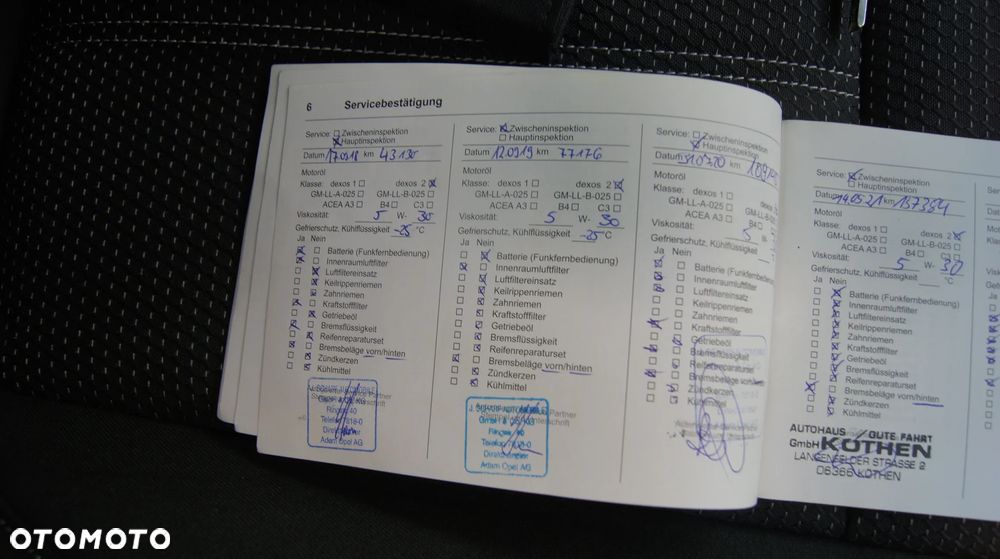 6 Servicebestätigung
Service: Zwischeninspektion
Hauptinspektion
Datum km 43130
Motoröl
Klasse: dexos 1 dexos 2
GM-LL-A-025 GM-LL-B-025
ACEA A3 B4 C3
Viskosität: 5 W- 30
Gefrierschutz, Kühlflüssigkeit -25 °C
Ja Nein
Batterie (Funkfernbedienung)
Innenraumluftfilter
Luftfiltereinsatz
Keilrippenriemen
Zahnriemen
Kraftstofffilter
Getriebeöl
Bremsflüssigkeit
Reifenreparaturset
Bremsbeläge vorn/hinten
Zündkerzen
Kühlmittel
Ringstr. 40
Adam Opel AG
Service: Zwischeninspektion
Hauptinspektion
Datum 120919 km 77176
Motoröl
Klasse: dexos 1 dexos 2
GM-LL-A-025 GM-LL-B-025
ACEA A3 B4 C3
Viskosität: 5 W- 30
Gefrierschutz, Kühlflüssigkeit -25 °C
Ja Nein
Batterie (Funkfernbedienung)
Innenraumluftfilter
Luftfiltereinsatz
Keilrippenriemen
Zahnriemen
Kraftstofffilter
Getriebeöl
Bremsflüssigkeit
Reifenreparaturset
Bremsbeläge vorn/hinten
Zündkerzen
Kühlmittel
GmbH & Co. KG
Adam Opel AG
Service: Zwischeninspektion
Hauptinspektion
Datum km
Motoröl
Klasse: dexos 1
GM-LL-A-025 GM-LL-B-025
ACEA A3 B4
Viskosität: 5 W
Gefrierschutz, Kühlflüssigkeit
Ja Nein
Batterie (Funkfernbedienung)
Innenraumluftfilter
Luftfiltereinsatz
Keilrippenriemen
Zahnriemen
Kraftstofffilter
Getriebeöl
Bremsflüssigkeit
Reifenreparaturset
Bremsbeläge vorn/hinten
Zündkerzen
Kühlmittel
Service: Zwischeninspektion
Hauptinspektion
Datum 140521 km 137364
Motoröl
Klasse: dexos 1 dexos 2
GM-LL-A-025 GM-LL-B-025
ACEA A3 B4 C3
Viskosität: 5 W- 30
Gefrierschutz, Kühlflüssigkeit °C
Ja Nein
Batterie (Funkfernbedienung)
Innenraumluftfilter
Luftfiltereinsatz
Keilrippenriemen
Zahnriemen
Kraftstofffilter
Getriebeöl
Bremsflüssigkeit
Reifenreparaturset
Bremsbeläge vorn/hinten
Zündkerzen
Kühlmittel
AUTOHAUS GUTE FAHRT
GmbH KÖTHEN
LANGENFELDER STRASSE 2
06366 KÖTHEN
OTOMOTO